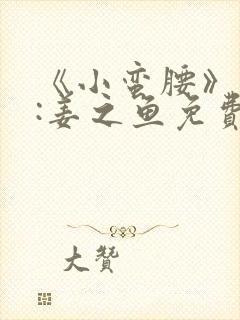 《小蛮腰》
:姜之鱼免費
大贊